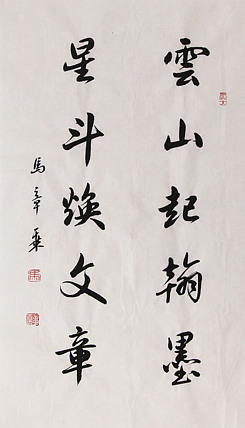 雲山起翰墨
星斗煥文章
馬章乘